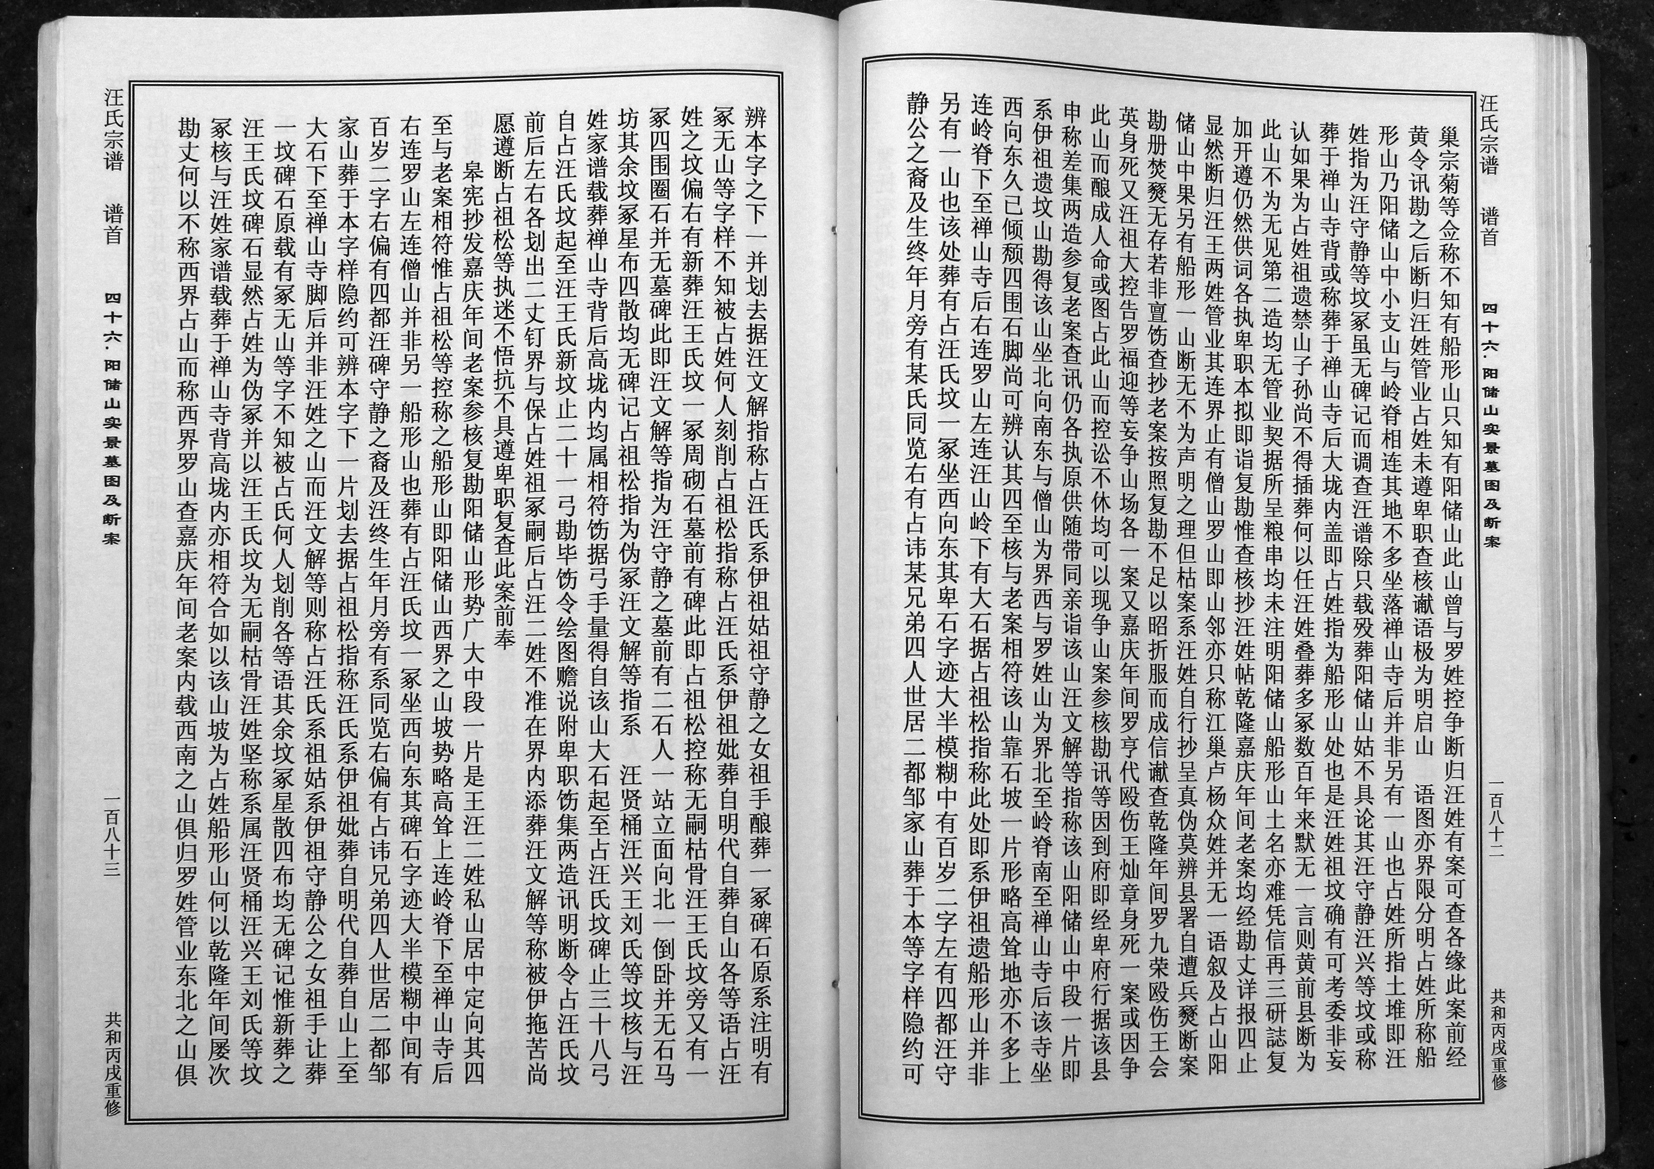 汪氏宗谱 谱首 四十六·阳储山实景墓图及断案 一百八十二 共和丙戌重修
巢宗菊等佥称不知有船形山只知有阳储山此山曾与罗姓控争断归汪姓有案可查各缘此案前经
黄令讯勘之后断归汪姓管业占姓未遵卑职查核谳语极为明启山 语图亦界限分明占姓所称船
形山乃阳储山中小支山与岭脊相连其地不多坐落禅山寺后并非另有一山也占姓所指土堆即汪
姓指为汪守静等坟冢虽无碑记而调查汪谱除只载殁葬阳储山姑不具论其汪守静汪兴等坟或称
葬于禅山寺背或称葬于禅山寺后大垅内盖即占姓指为船形山处也是汪姓祖坟确有可考委非妄
认如果为占姓祖遗禁山子孙尚不得插葬何以任汪姓叠葬多冢数百年来默无一言则黄前县断为
此山不为无见第二造均无管业契据所呈粮串均未注明阳储山船形山土名亦难凭信再三研誌复
加开遵仍然供词各执卑职本拟即诣复勘惟查核抄汪姓帖乾隆嘉庆年间老案均经勘丈详报四止
显然断归汪王两姓管业其连界止有僧山罗山即山邻亦只称江巢卢杨众姓并无一语叙及占山阳
储山中果另有船形一山断无不为声明之理但枯案系汪姓自行抄呈真伪莫辨县署自遭兵燹断案
勘册焚燹无存若非亶饬查抄老案按照复勘不足以昭折服而成信谳查乾隆年间罗九荣殴伤王会
英身死又汪祖大控告罗福迎等妄争山场各一案又嘉庆年间罗亨代殴伤王灿章身死一案或因争
此山而酿成人命或图占此山而控讼不休均可以现争山案参核勘讯等因到府即经卑府行据该县
申称差集两造参复老案查讯仍各执原供随带同亲诣该山汪文解等指称该山阳储山中段一片即
系伊祖遗坟山勘得该山坐北向南东与僧山为界西与罗姓山为界北至岭脊南至禅山寺后该寺坐
西向东久已倾颓四围石脚尚可辨认其四至核与老案相符该山靠石坡一片形略高耸地亦不多上
连岭脊下至禅山寺后右连罗山左连汪山岭下有大石据占祖松指称此处即系伊祖遗船形山并非
另有一山也该处葬有占汪氏坟一冢坐西向东其卑石字迹大半模糊中有百岁二字左有四都汪守
静公之裔及生终年月旁有某氏同览右有占讳某兄弟四人世居二都邹家山葬于本等字样隐约可
辨本字之下一并划去据汪文解指称占汪氏系伊祖姑祖守静之女祖手酿葬一冢碑石原系注明有
冢无山等字样不知被占姓何人刻削占祖松指称占汪氏系伊祖妣葬自明代自葬自山各等语占汪
姓之坟偏右有新葬汪王氏坟一冢周砌石墓前有碑此即占祖松控称无嗣枯骨汪王氏坟旁又有一
冢四围圈石并无墓碑此即汪文解等指为汪守静之墓前有二石人一站立面向北一倒卧并无石马
坊其余坟冢星布四散均无碑记占祖松指为伪冢汪文解等指系 汪贤桶汪兴王刘氏等坟核与汪
姓家谱载葬禅山寺背后高垅内均属相符饬据弓手量得自该山大石起至占汪氏坟碑止三十八弓
自占汪氏坟起至汪王氏新坟止二十一弓勘毕饬令绘图赡说附卑职饬集两造讯明断令占汪氏坟
前后左右各划出二丈钉界与保占姓祖冢嗣后占汪二姓不准在界内添葬汪文解等称被伊拖苦尚
愿遵断占祖松等执迷不悟抗不具遵卑职复查此案前奉
皋宪抄发嘉庆年间老案参核复勘阳储山形势广大中段一片是王汪二姓私山居中定向其四
至与老案相符惟占祖松等控称之船形山即阳储山西界之山坡势略高耸上连岭脊下至禅山寺后
右连罗山左连僧山并非另一船形山也葬有占汪氏坟一冢坐西向东其碑石字迹大半模糊中间有
百岁二字右偏有四都汪碑守静之裔及汪终生年月旁有系同览右偏有占讳兄弟四人世居二都邹
家山葬于本字样隐约可辨本字下一片划去据占祖松指称汪氏系伊祖妣葬自明代自葬自山上至
大石下至禅山寺脚后并非汪姓之山而汪文解等则称占汪氏系祖姑系伊祖守静公之女祖手让葬
一坟碑石原载有冢无山等字不知被占氏何人划削各等语其余坟冢星散四布均无碑记惟新葬之
汪王氏坟碑石显然占姓为伪冢并以汪王氏坟为无嗣枯骨汪姓坚称系属汪贤桶汪兴王刘氏等坟
冢核与汪姓家谱载葬于禅山寺背高垅内亦相符合如以该山坡为占姓船形山何以乾隆年间屡次
勘丈何以不称西界占山而称西界罗山查嘉庆年间老案内载西南之山俱归罗姓管业东北之山俱
汪氏宗谱 谱首 四十六·阳储山实景墓图及断案 一百八十三 共和丙戌重修